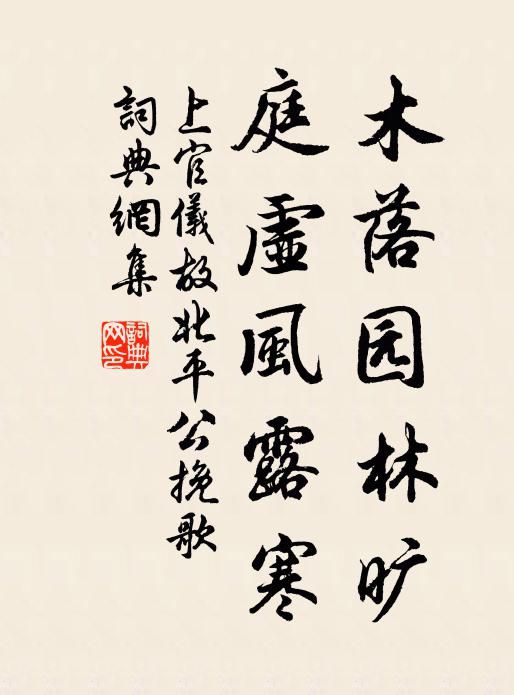 木落园林旷
庭虛風露寒
上官儀故北平公挽歌
詞典網集
詞典網印